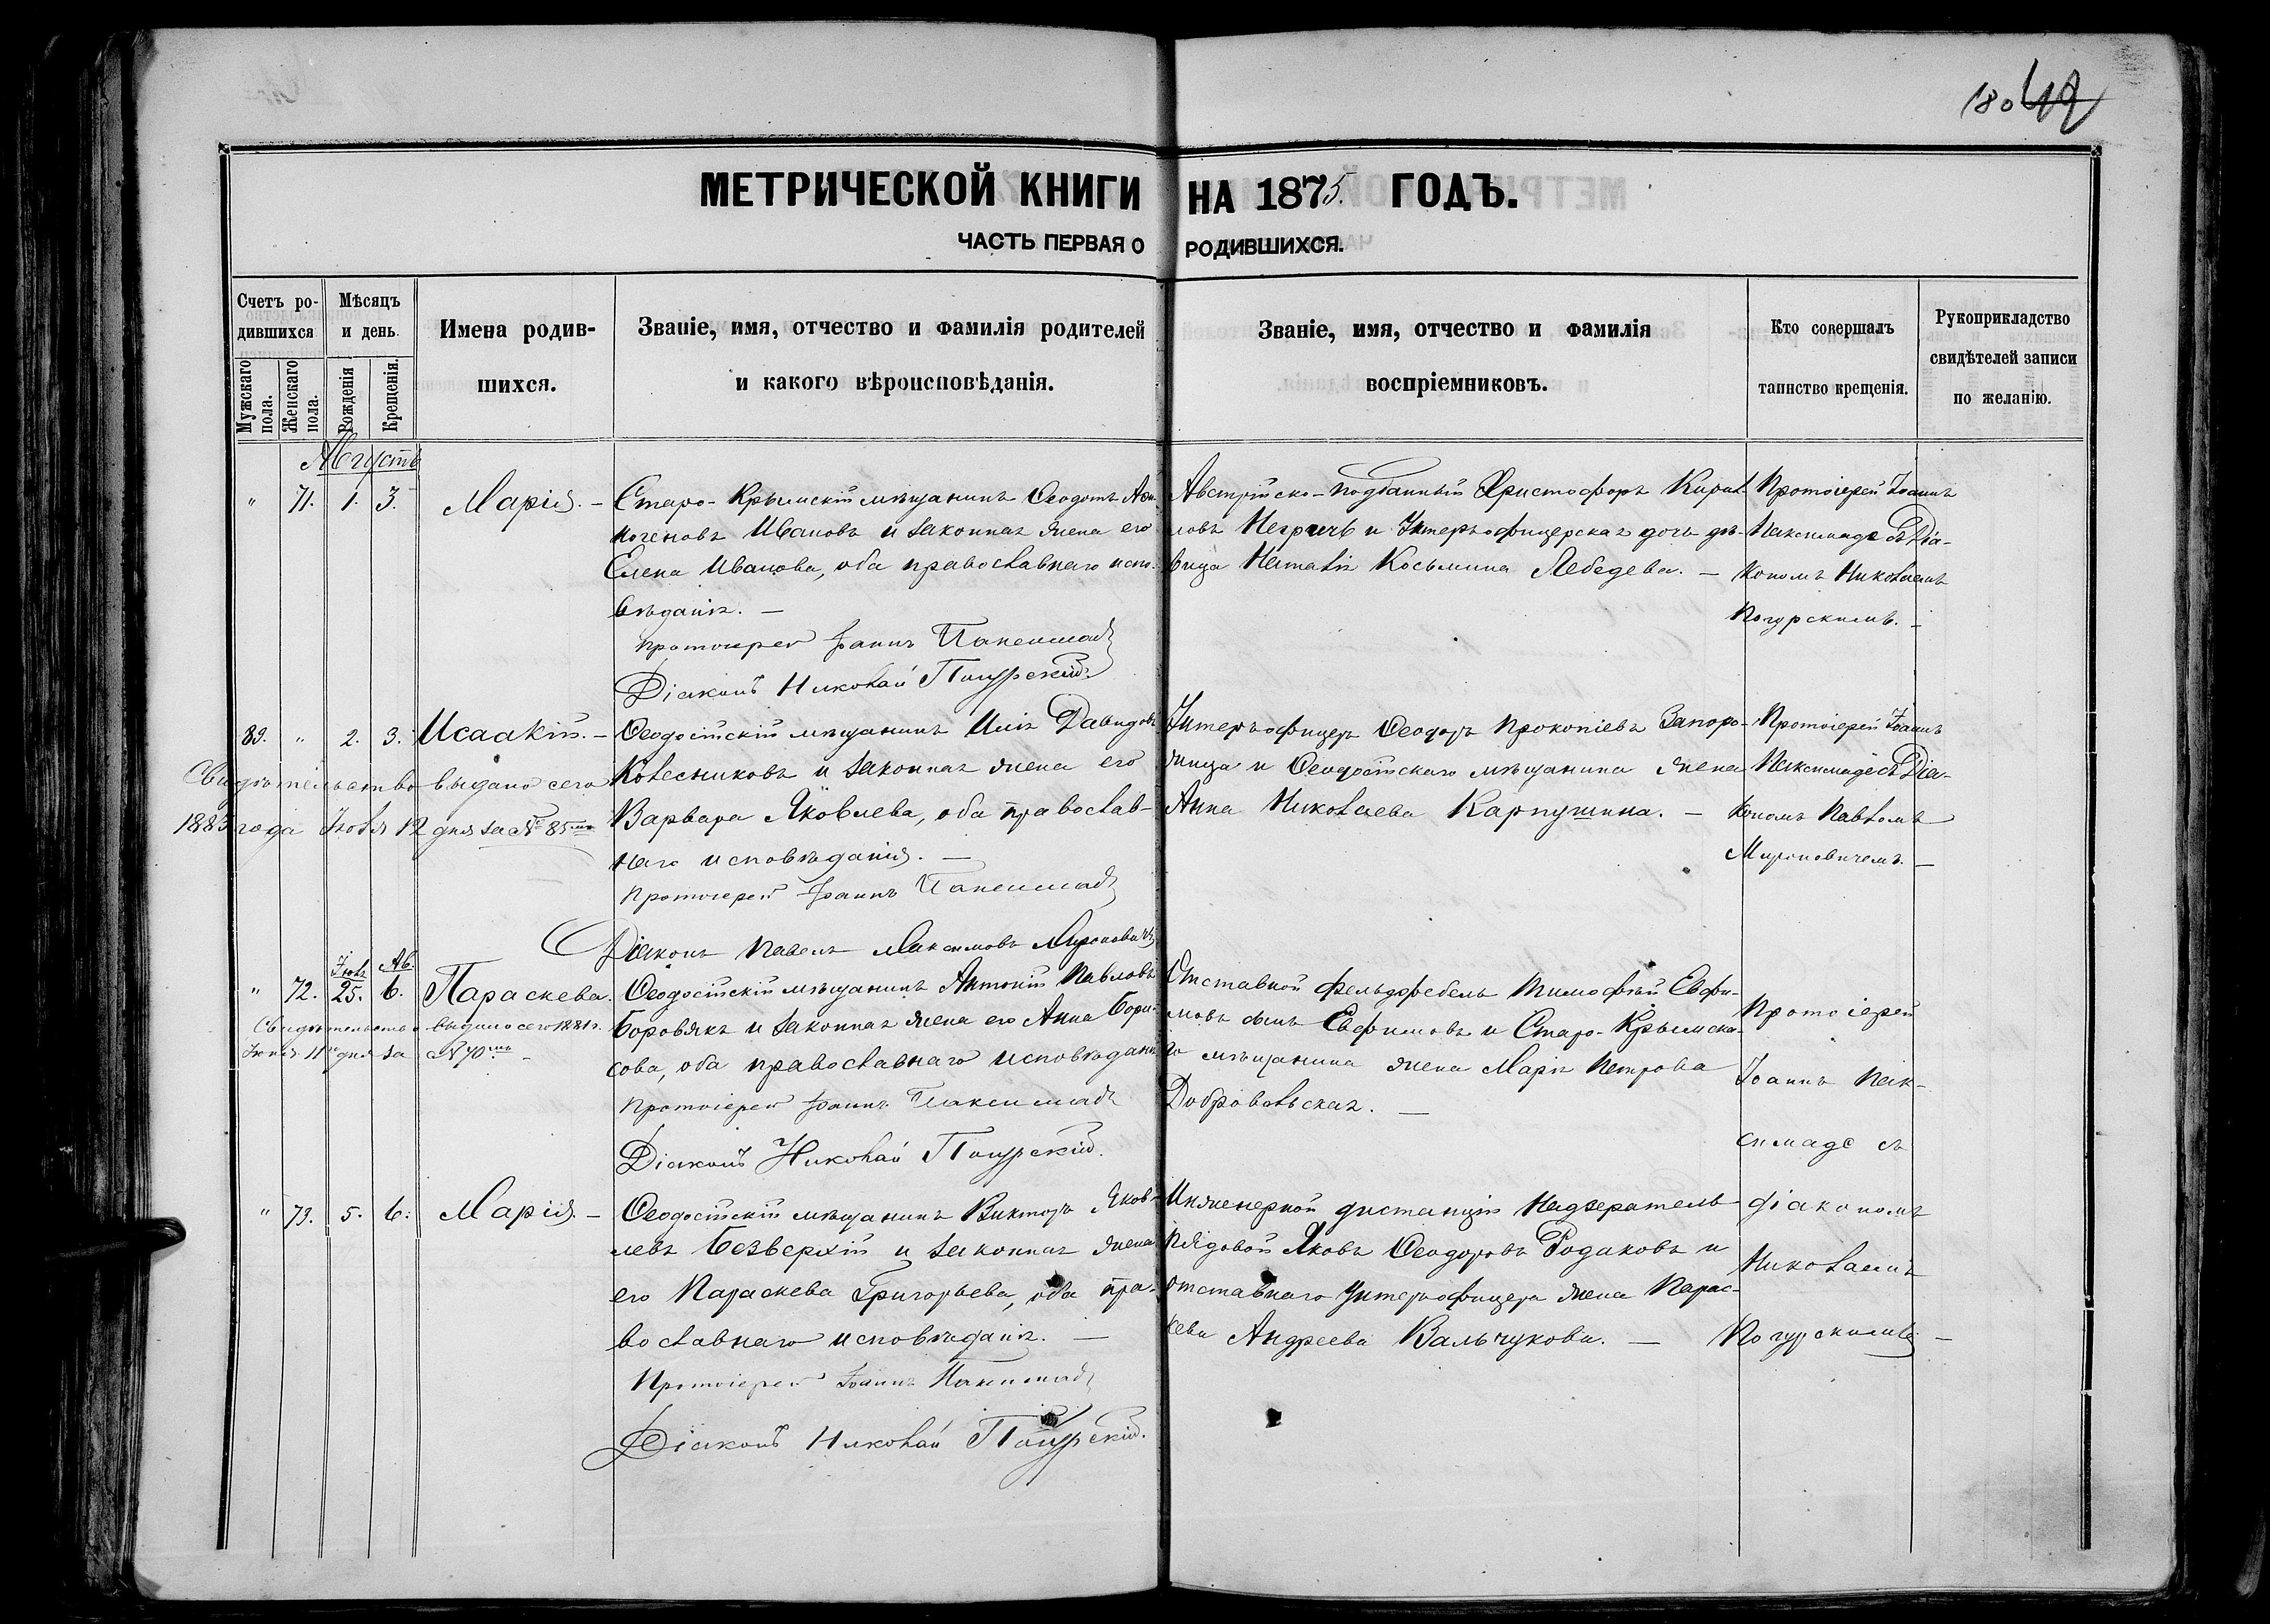 180
МЕТРИЧЕСКОЙ КНИГИ НА 1875. ГОДЪ.
ЧАСТЬ ПЕРВАЯ О РОДИВШИХСЯ.
Счетъ ро-
дившихся
Мужскаго пола.
Женскаго пола.
Мѣсяцъ
и день.
Рожденія
Крещенія.
Имена родив-
шихся.
Званіе, имя, отчество и фамилія родителей
и какого вѣроисповѣданія.
Званіе, имя, отчество и фамилія
воспріемниковъ.
Кто совершалъ
таинство крещенія.
Рукоприкладство
свидѣтелей записи
по желанію.
Августъ
" 71. 1. 3. Марія. —
Старо-Крымскій мѣщанинъ Ѳеодотъ
Ивановъ и законная жена его
Елена Иванова, оба православнаго испо-
вѣданія. —
Протоіерей Іоаннъ Пакси­мадъ
Діаконъ Николай Погурскій.
Австрійско-подданный Христофоръ Кирил-
ловъ Негричъ и Унтеръ-офицерская дочь дѣ-
вица Наталія Косьмина Лебедева. —
Протоіерей Іоаннъ
Паксимаде съ Діа-
кономъ Николаемъ
Погурскимъ. —
89. " 2. 3. Исаакій. —
Свидѣтельство выдано сего
1883 года Іюля 12 дня за № 85мъ
Ѳеодосійскій мѣщанинъ Илія Давидовъ
Колесниковъ и законная жена его
Варвара Яковлева, оба православ-
наго исповѣданія. —
Протоіерей Іоаннъ Паксимадъ
Діаконъ Павелъ Максимовъ Мироновичъ
Унтеръ-офицеръ Ѳеодоръ Прокопіевъ Запоро-
жица и Ѳеодосійскаго мѣщанина жена
Анна Николаева Карпушина. —
Протоіерей Іоаннъ
Паксимаде съ Діа-
кономъ Павломъ
Мироновичемъ. —
Іюль Ав.
" 72. 25. 6. Параскева.
Свидѣтельство выдано сего 1881 г.
Іюня 11го дня за № 70мъ —
Ѳеодосійскій мѣщанинъ Антоній Павловъ
Боровякъ и законная жена его Анна Бори-
сова, оба православнаго исповѣданія
Протоіерей Іоаннъ Паксимадъ
Діаконъ Николай Погурскій.
Отставной фельдфебель Тимофѣй Евфи-
мовъ сынъ Евфимовъ и Старо-Крымска-
го мѣщанина жена Марія Петрова
Добровольская. —
Протоіерей
Іоаннъ Пак-
симаде съ
" 73. 5. 6. Марія. —
Ѳеодосійскій мѣщанинъ Викторъ Яков-
левъ Безверхій и законная жена
его Параскева Григорьева, оба пра-
вославнаго исповѣданія. —
Протоіерей Іоаннъ Паксимадъ
Діаконъ Николай Погурскій.
Инженерной дистанціи Надзератель
Рядовой Яковъ Ѳеодоровъ Родаковъ и
отставнаго Унтеръ-офицера жена Парас-
кева Андреева Вальчукова. —
діакономъ
Николаемъ
Погурскимъ —